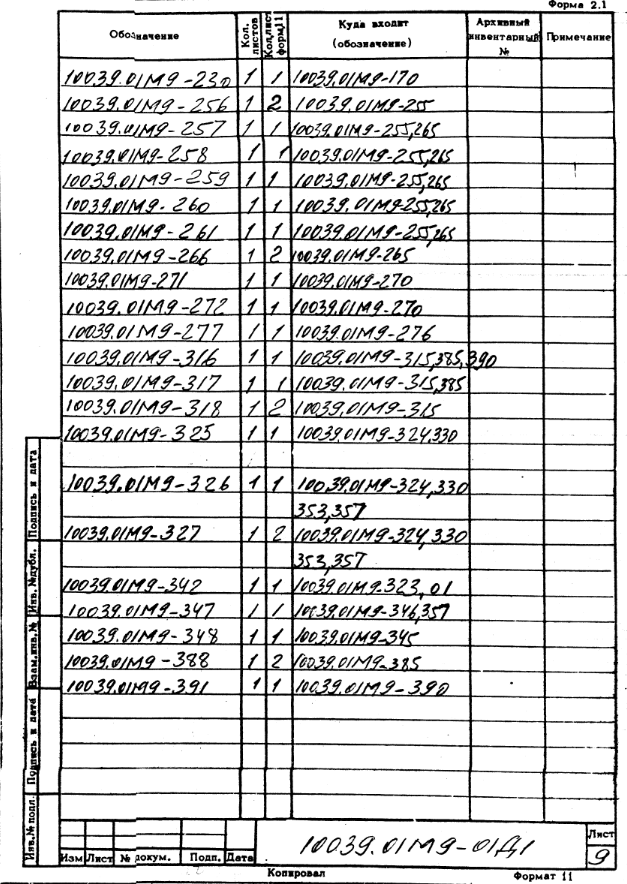 Форма 2.1
Обозначение Кол. листов Кол.лист форм.11 Куда входит (обозначение) Архивный инвентарный № Примечание
10039.01М9-230 1 1 10039.01М9-170
10039.01М9-256 1 2 10039.01М9-255
10039.01М9-257 1 1 10039.01М9-255,265
10039.01М9-258 1 1 10039.01М9-255,265
10039.01М9-259 1 1 10039.01М9-255,265
10039.01М9-260 1 1 10039.01М9-255,265
10039.01М9-261 1 1 10039.01М9-255,265
10039.01М9-266 1 2 10039.01М9-265
10039.01М9-271 1 1 10039.01М9-270
10039.01М9-272 1 1 10039.01М9-270
10039.01М9-277 1 1 10039.01М9-276
10039.01М9-316 1 1 10039.01М9-315,385,390
10039.01М9-317 1 1 10039.01М9-315,385
10039.01М9-318 1 2 10039.01М9-315
10039.01М9-325 1 1 10039.01М9-324,330
10039.01М9-326 1 1 10039.01М9-324,330
353,357
10039.01М9-327 1 2 10039.01М9-324,330
353,357
10039.01М9-342 1 1 10039.01М9-323,01
10039.01М9-347 1 1 10039.01М9-346,357
10039.01М9-348 1 1 10039.01М9-345
10039.01М9-388 1 2 10039.01М9-385
10039.01М9-391 1 1 10039.01М9-390
Подпись и дата
Инв. №дубл.
Взам.инв.№
Подпись и дата
Инв.№ подл.
10039.01М9-01Д1
Лист
9
Изм Лист № докум. Подп. Дата
Копировал
Формат 11